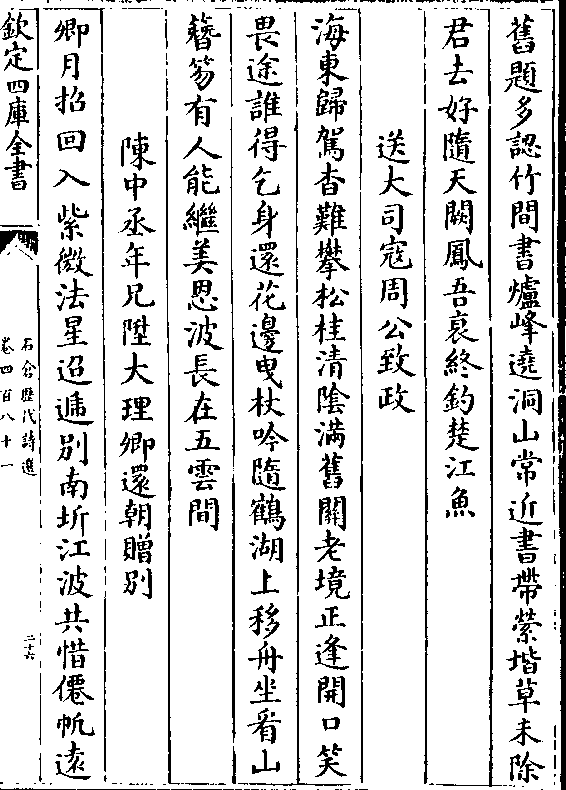 舊題多認竹間書爐峰遶洞山常近書帶縈堦草未除
君去好隨天闕鳳吾哀終釣楚江魚
送大司寇周公致政
海東歸駕杳難攀松桂清陰滿舊關老境正逢開口笑
畏途誰得乞身還花邊曳杖吟隨鶴湖上移舟坐看山
簪笏有人能繼美恩波長在五雲間
陳中丞年兄陞大理卿還朝贈別
卿月招回入紫微法星迢遞別南圻江波共惜僊帆遠
欽定四庫全書
石倉歴代詩選
卷四百八十一
二十六